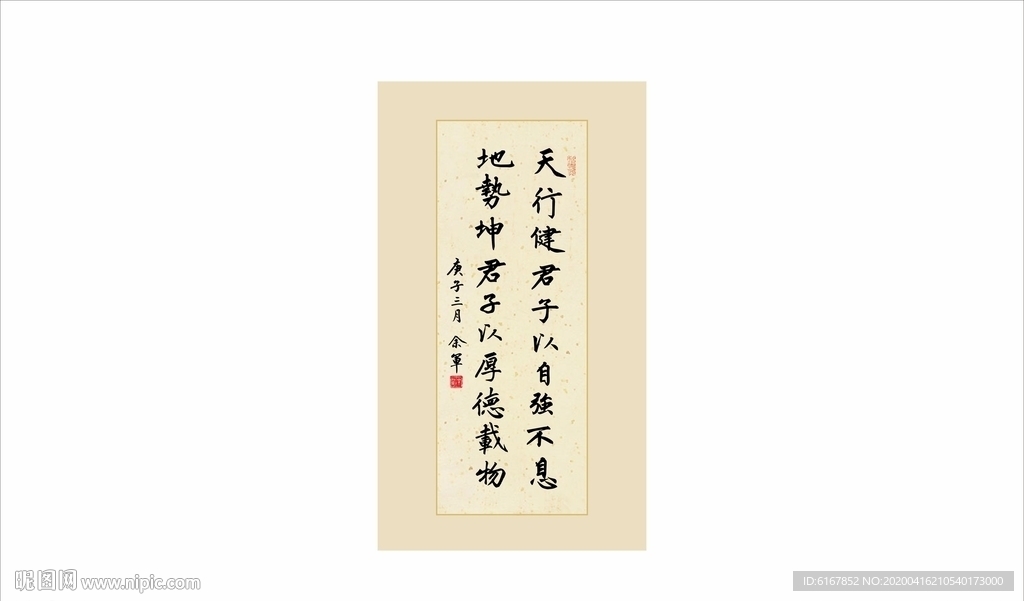 天行健君子以自強不息
地勢坤君子以厚德載物
庚子三月 余軍
昵图网 www.nipic.com
ID:6167852 NO:20200416210540173000